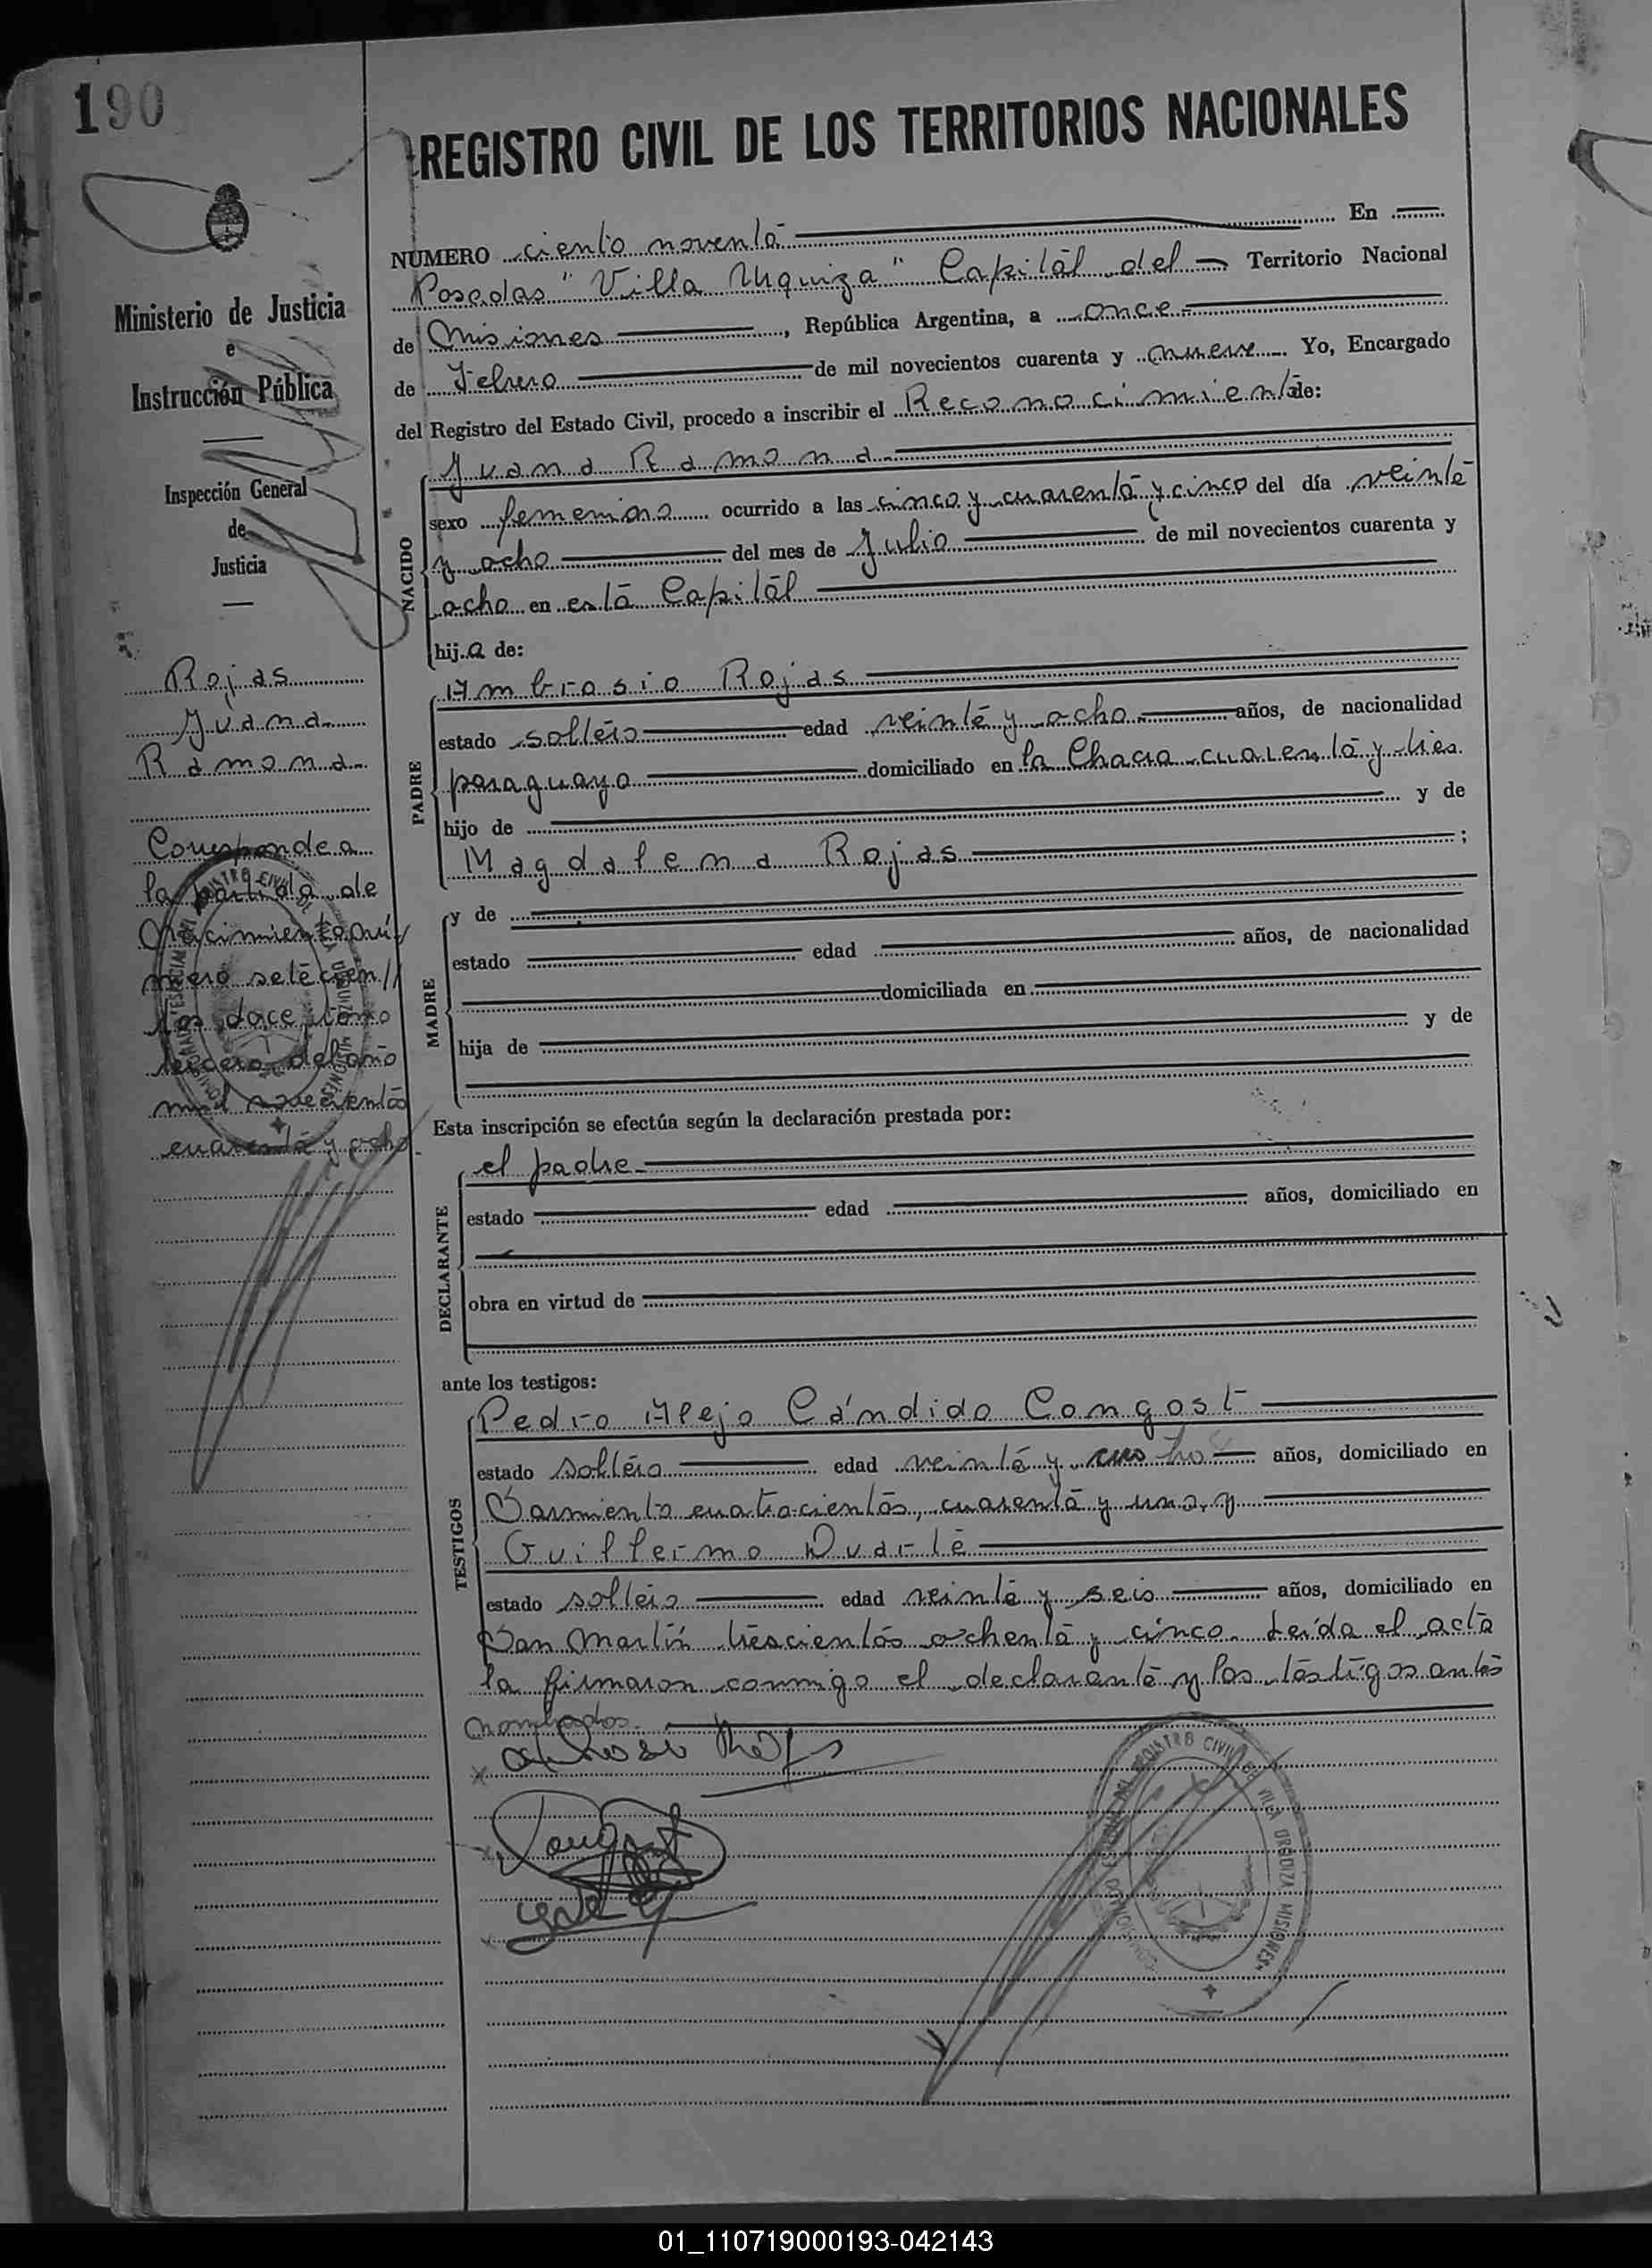 190
REGISTRO CIVIL DE LOS TERRITORIOS NACIONALES
NUMERO ciento noventa En
Posadas "Villa Urquiza" Capital del Territorio Nacional
de Misiones, República Argentina, a once
de Febrero de mil novecientos cuarenta y nueve. Yo, Encargado
del Registro del Estado Civil, procedo a inscribir el Reconocimiento de:
NACIDO
Juana Ramona
sexo femenino ocurrido a las cinco y cuarenta y cinco del día veinte
y ocho del mes de Julio de mil novecientos cuarenta y
ocho en esta Capital
hija de:
PADRE
Ambrosio Rojas
estado soltero edad veinte y ocho años, de nacionalidad
paraguaya domiciliado en la Chacra cuarenta y tres
hijo de y de
Magdalena Rojas ;
MADRE
y de
estado edad años, de nacionalidad
domiciliada en
hija de y de
Esta inscripción se efectúa según la declaración prestada por:
DECLARANTE
el padre
estado edad años, domiciliado en
obra en virtud de
ante los testigos:
TESTIGOS
Pedro Alejo Cándido Congost
estado soltero edad veinte y años, domiciliado en
Sarmiento cuatrocientos, cuarenta y uno, y
Guillermo Duarte
estado soltero edad veinte y seis años, domiciliado en
San Martín trescientos ochenta y cinco. Leída el acta
la firmaron conmigo el declarante y los testigos antes
nombrados.
Ministerio de Justicia
e
Instrucción Pública
Inspección General
de
Justicia
Rojas
Juana
Ramona
Corresponde a
la partida de
Nacimiento nú-
mero setecien//
tos doce, tomo
tercero del año
mil novecientos
cuarenta y ocho.
REGISTRO CIVIL DE VILLA URQUIZA MISIONES
01_110719000193-042143